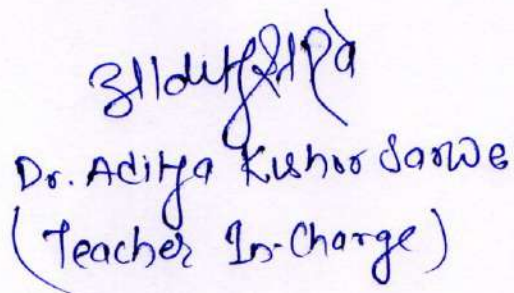 Dr. Aditya Kishor Sarwe
(Teacher In-Charge)